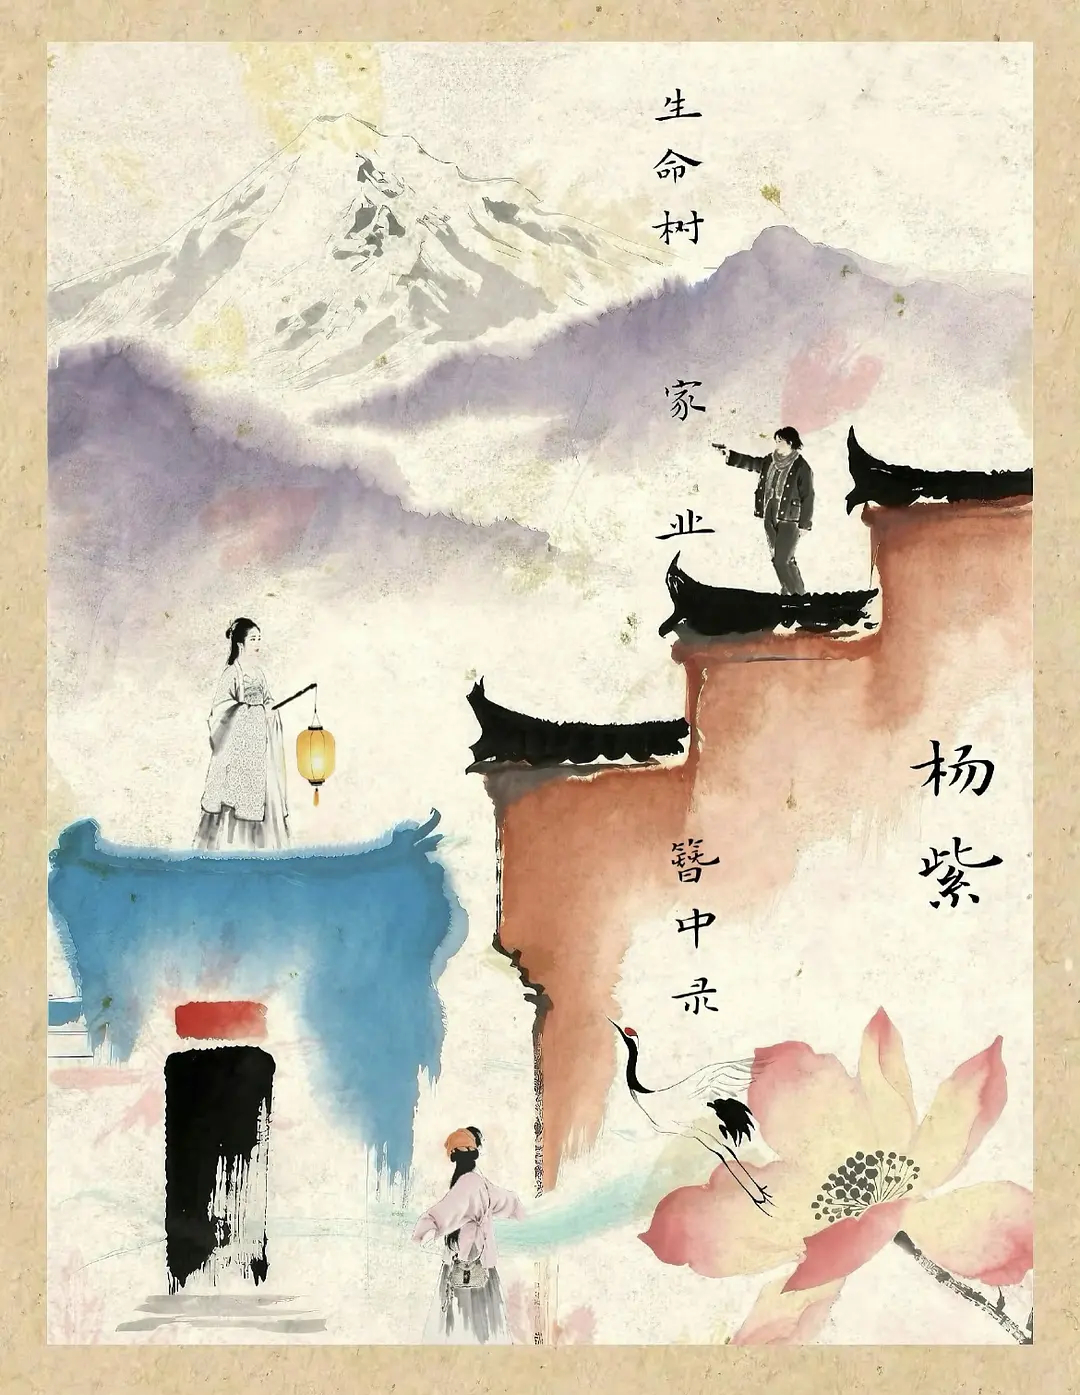 生命树
家业
簪中录
杨紫